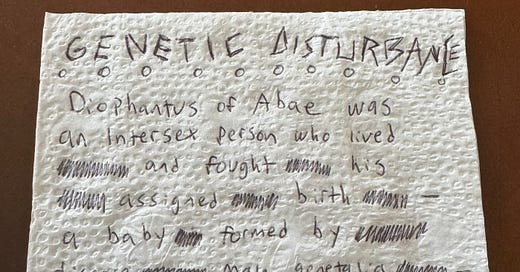 GENETIC DISTURBANCE
Diophantus of Abae was
an Intersex Person who lived
and fought his
assigned birth —
a baby formed by
male genetalia